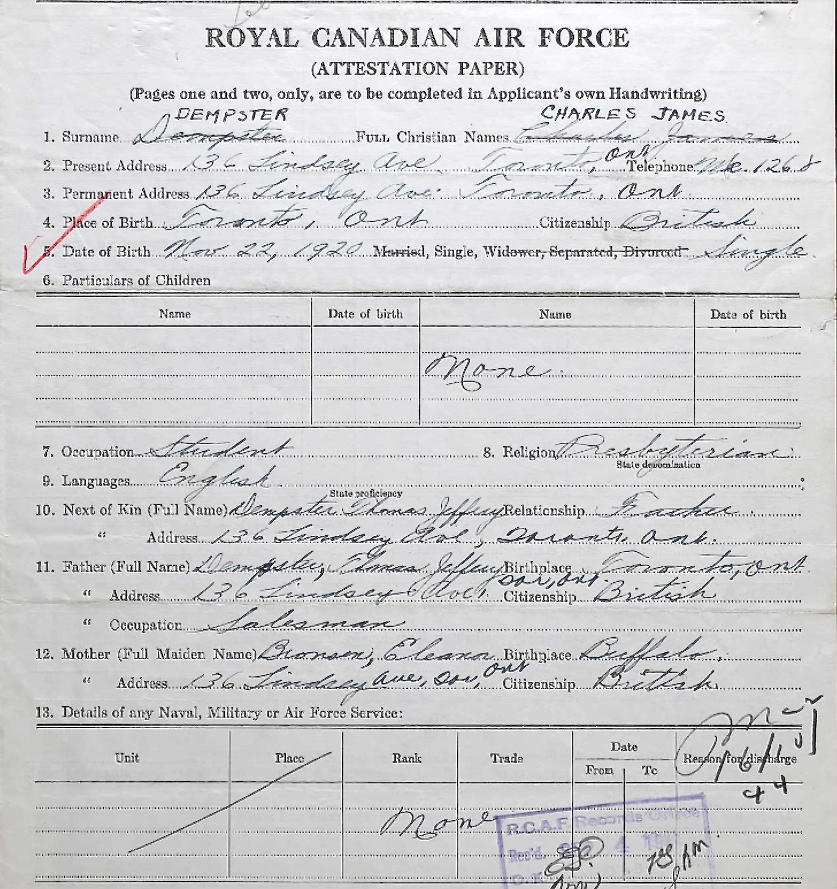 ROYAL CANADIAN AIR FORCE
(ATTESTATION PAPER)
(Pages one and two, only, are to be completed in Applicant's own Handwriting)
DEMPSTER CHARLES JAMES
1. Surname Dempster FULL Christian Names Charles James
2. Present Address 136 Lindsey Ave. Toronto, Ont. Telephone Me. 1268
3. Permanent Address 136 Lindsey Ave. Toronto, Ont.
4. Place of Birth Toronto, Ont Citizenship British
5. Date of Birth Nov 22, 1920 Married, Single, Widower, Separated, Divorced Single
6. Particulars of Children
Name Date of birth Name Date of birth
None.
7. Occupation Student 8. Religion Presbyterian
State denomination
9. Languages English
State proficiency
10. Next of Kin (Full Name) Dempster Thomas Jeffery Relationship Father
" Address 136 Lindsey Ave, Toronto, Ont.
11. Father (Full Name) Dempster, Thomas Jeffery Birthplace Toronto, Ont
" Address 136 Lindsey Ave, Tor, Ont Citizenship British
" Occupation Salesman
12. Mother (Full Maiden Name) Bronson, Eleanor Birthplace Buffalo.
" Address 136 Lindsey Ave, Tor, Ont Citizenship British
13. Details of any Naval, Military or Air Force Service:
Unit Place Rank Trade Date Reason for discharge
From To
None
R.C.A.F. Records Office
Rec'd.